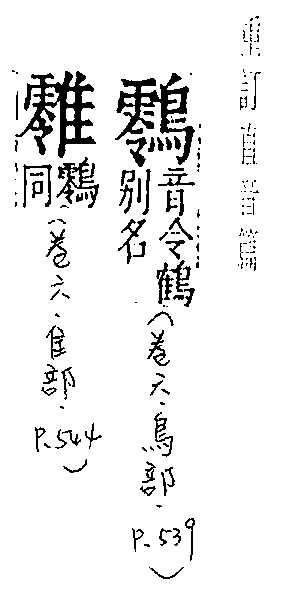 重訂直音篇
䴇音令鶴
别名
（卷六·鳥部·
P.539）
䴇
同
（卷六·隹部·
P.544）